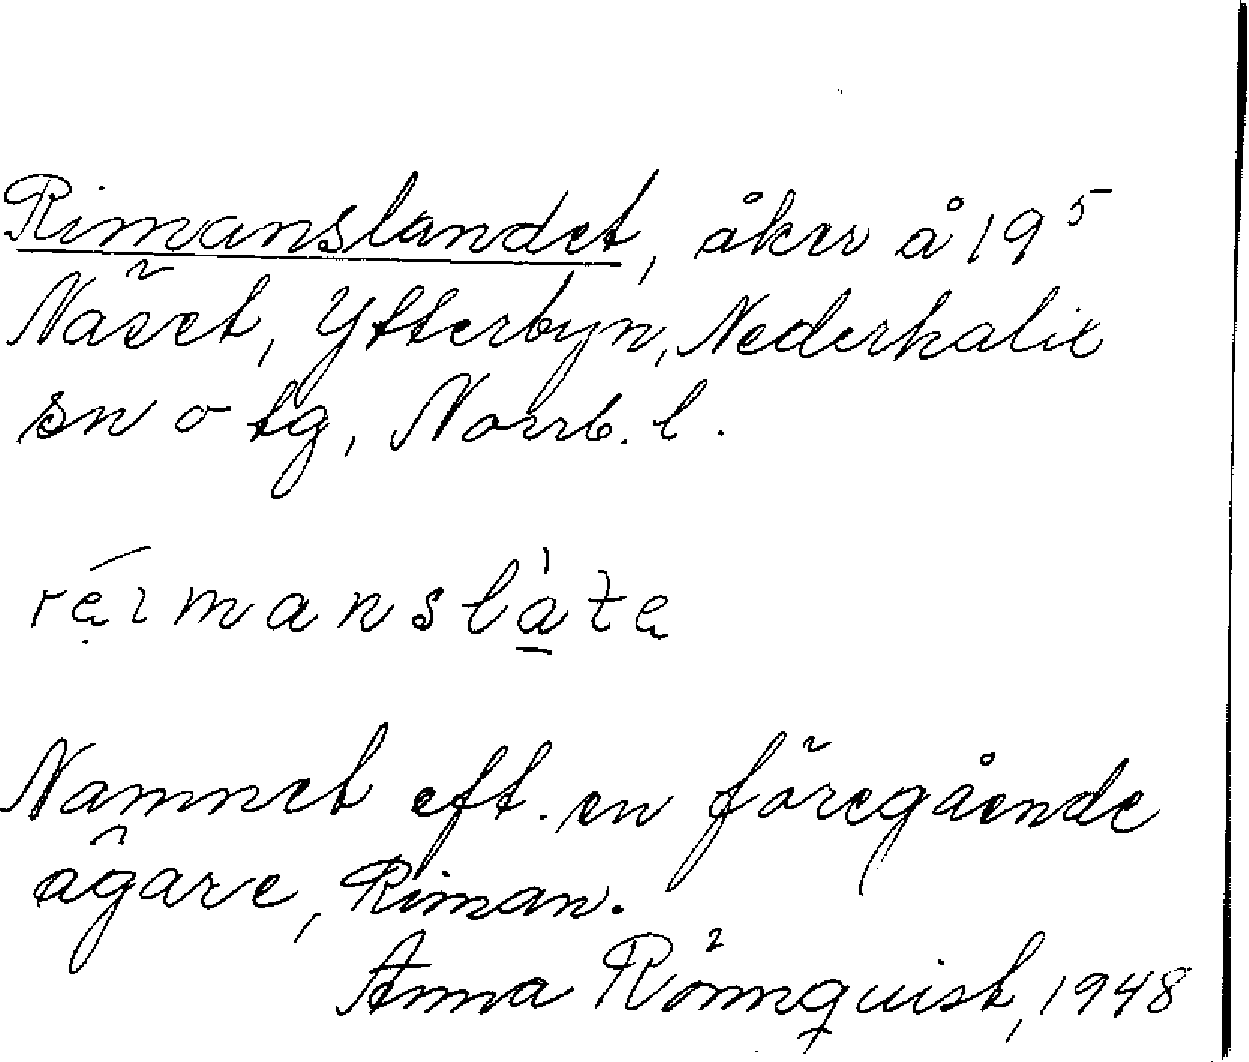 Rimanslandet, åker å 19⁵
Näset, Ytterbyn, Nederkalix
sn o tg, Norrb. l.
Namnet eft. en föregående
ägare, Riman.
Anna Rönnquist, 1948